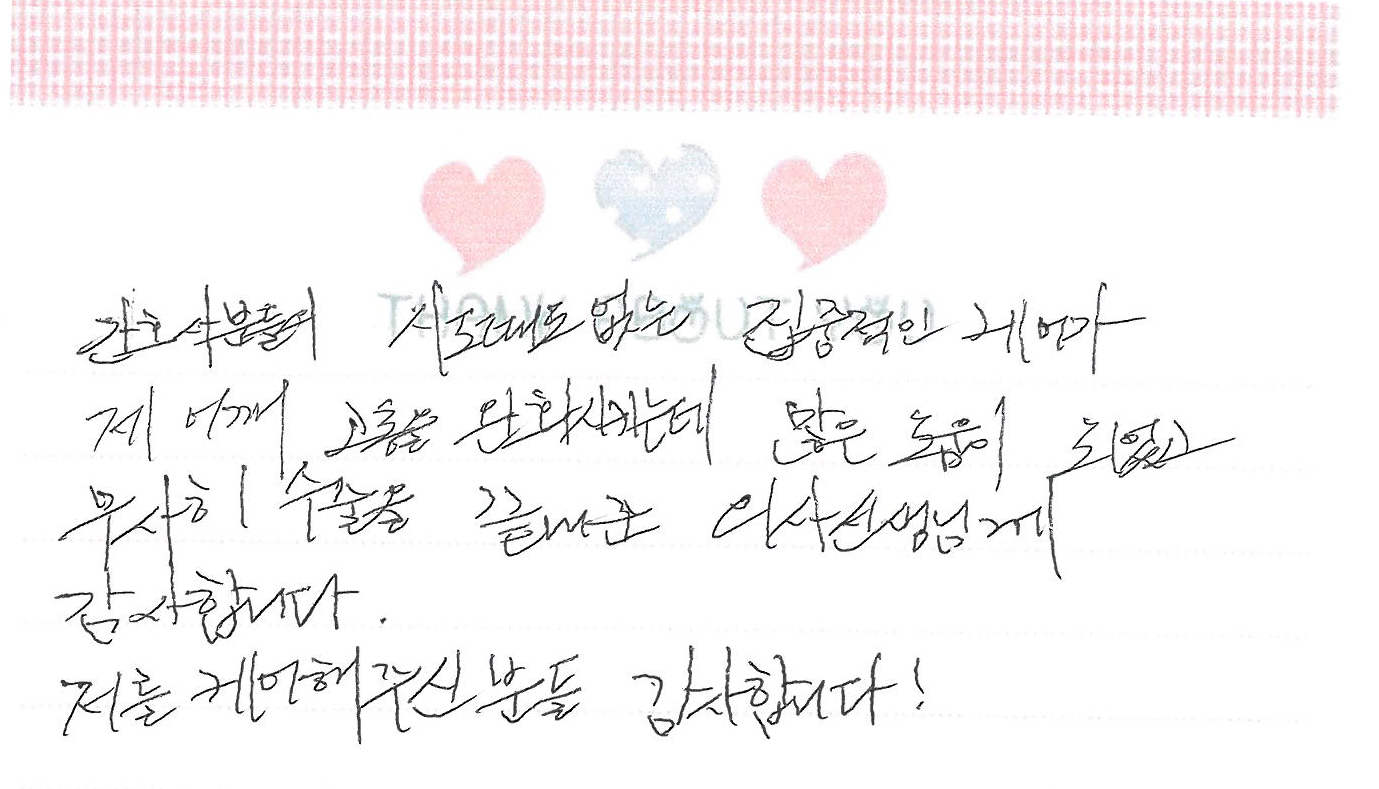 THANK ABOUT YOU
간호사분들의 시도때도 없는 집중적인 케어가
제 어깨 고통을 완화시키는데 많은 도움이 되었고
무사히 수술을 끝내준 의사선생님께
감사합니다.
저를 케어해주신분들 감사합니다!